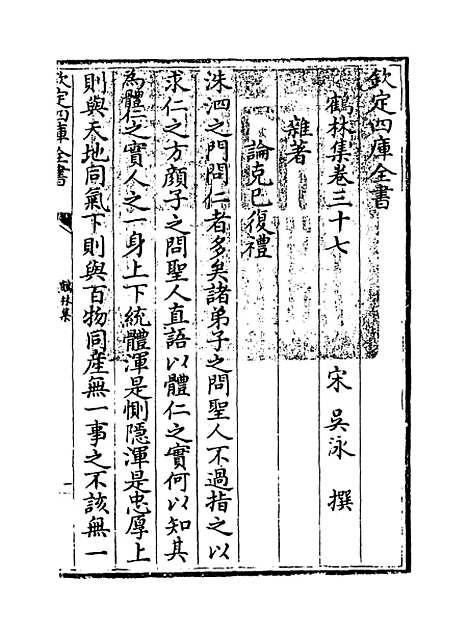 欽定四庫全書
鶴林集卷三十七
宋 吳泳 撰
雜著
論克已復禮
洙泗之門問仁者多矣諸弟子之問聖人不過指之以
求仁之方顔子之問聖人直語以體仁之實何以知其
為體仁之實人之一身上下統體渾是惻隱渾是忠厚上
則與天地同氣下則與百物同産無一事之不該無一
欽定四庫全書
鶴林集
一